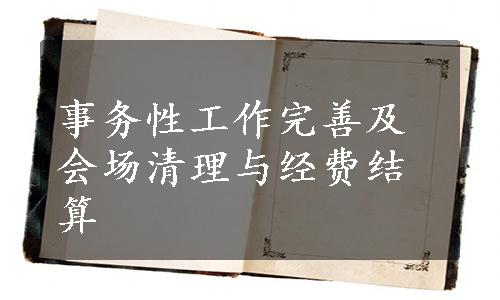 事务性工作完善及
会场清理与经费结
算